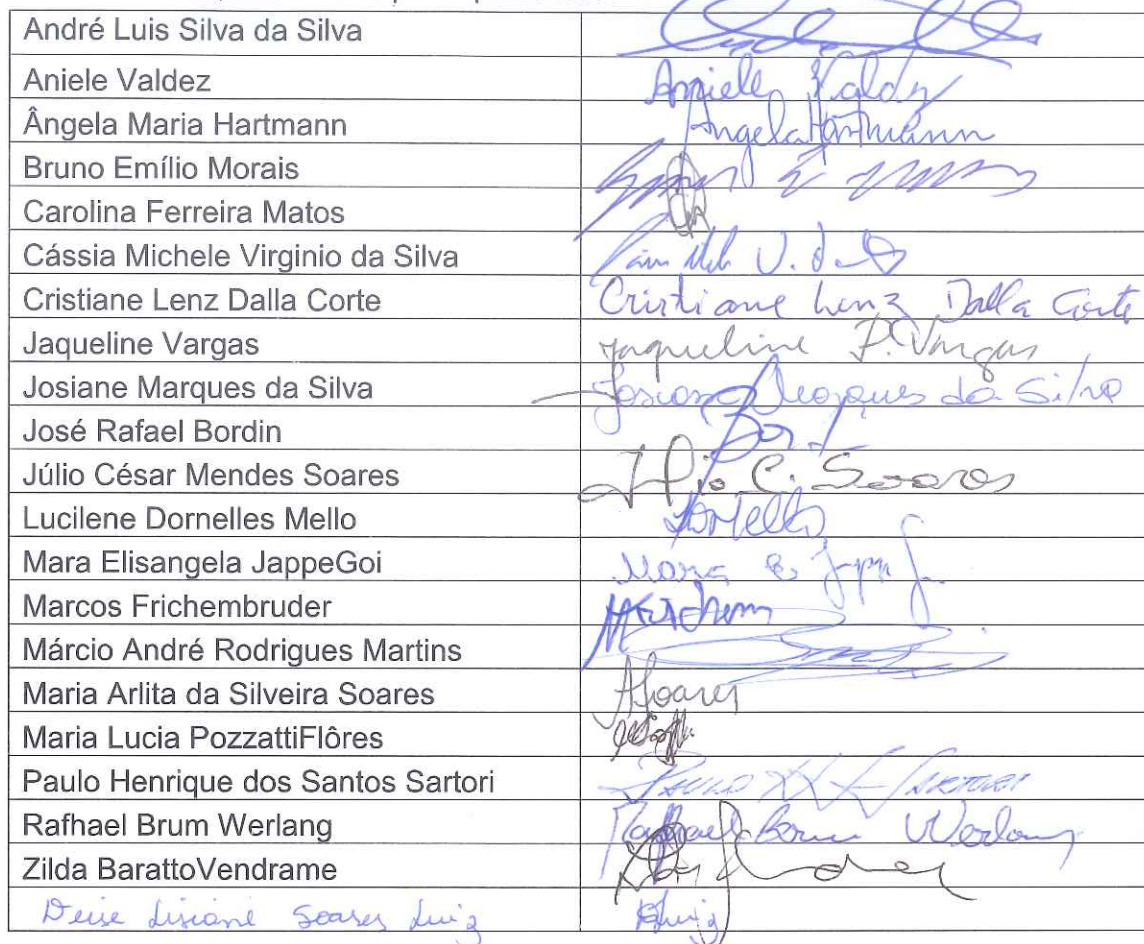 André Luis Silva da Silva
Aniele Valdez Aniele Valdez
Ângela Maria Hartmann Angela Hartmann
Bruno Emílio Morais
Carolina Ferreira Matos
Cássia Michele Virginio da Silva
Cristiane Lenz Dalla Corte Cristiane Lenz Dalla Corte
Jaqueline Vargas Jaqueline P. Vargas
Josiane Marques da Silva Josiane Marques da Silva
José Rafael Bordin
Júlio César Mendes Soares Júlio C. Soares
Lucilene Dornelles Mello
Mara Elisangela JappeGoi
Marcos Frichembruder
Márcio André Rodrigues Martins
Maria Arlita da Silveira Soares ASoares
Maria Lucia PozzattiFlôres
Paulo Henrique dos Santos Sartori
Rafhael Brum Werlang Rafhael Brum Werlang
Zilda BarattoVendrame
Deise Lisiane Soares Luiz